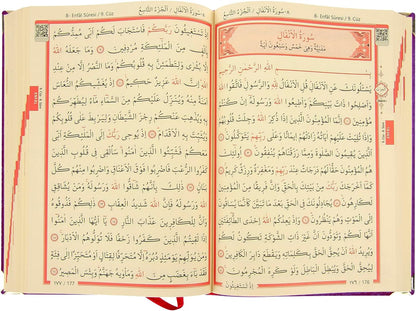 ٨-سُورَةُ الْأَنْفَالِ / اَلْجُزْءُ التَّاسِعُ 8- Enfâl Sûresi / 9. Cüz
سُورَةُ الْأَنْفَالِ
مَدَنِيَّةٌ وَهِيَ خَمْسٌ وَسَبْعُونَ اٰيَةً
بِسْمِ اللّٰهِ الرَّحْمٰنِ الرَّحِيمِ
يَسْـَٔلُونَكَ عَنِ الْأَنْفَالِ قُلِ الْأَنْفَالُ لِلّٰهِ وَالرَّسُولِ فَاتَّقُوا اللّٰهَ
وَاَصْلِحُوا ذَاتَ بَيْنِكُمْ وَاَطِيعُوا اللّٰهَ وَرَسُولَهُ اِنْ كُنْتُمْ مُؤْمِنِينَ
اِنَّمَا الْمُؤْمِنُونَ الَّذِينَ اِذَا ذُكِرَ اللّٰهُ وَجِلَتْ قُلُوبُهُمْ
وَاِذَا تُلِيَتْ عَلَيْهِمْ اٰيَاتُهُ زَادَتْهُمْ اِيمَانًا وَعَلٰى رَبِّهِمْ يَتَوَكَّلُونَ
اَلَّذِينَ يُقِيمُونَ الصَّلٰوةَ وَمِمَّا رَزَقْنَاهُمْ يُنْفِقُونَ اُولٰٓئِكَ
هُمُ الْمُؤْمِنُونَ حَقًّا لَهُمْ دَرَجَاتٌ عِنْدَ رَبِّهِمْ وَمَغْفِرَةٌ وَرِزْقٌ كَرِيمٌ
كَمَا اَخْرَجَكَ رَبُّكَ مِنْ بَيْتِكَ بِالْحَقِّ وَاِنَّ فَرِيقًا مِنَ الْمُؤْمِنِينَ
لَكَارِهُونَ يُجَادِلُونَكَ فِي الْحَقِّ بَعْدَ مَا تَبَيَّنَ كَاَنَّمَا يُسَاقُونَ
اِلَى الْمَوْتِ وَهُمْ يَنْظُرُونَ وَاِذْ يَعِدُكُمُ اللّٰهُ اِحْدَى الطَّائِفَتَيْنِ
اَنَّهَا لَكُمْ وَتَوَدُّونَ اَنَّ غَيْرَ ذَاتِ الشَّوْكَةِ تَكُونُ لَكُمْ
وَيُرِيدُ اللّٰهُ اَنْ يُحِقَّ الْحَقَّ بِكَلِمَاتِهِ وَيَقْطَعَ دَابِرَ الْكَافِرِينَ
لِيُحِقَّ الْحَقَّ وَيُبْطِلَ الْبَاطِلَ وَلَوْ كَرِهَ الْمُجْرِمُونَ
اِذْ تَسْتَغِيثُونَ
١٧٦ / 176
8- Enfâl Sûresi / 9. Cüz ٨-سُورَةُ الْأَنْفَالِ / اَلْجُزْءُ التَّاسِعُ
اِذْ تَسْتَغِيثُونَ رَبَّكُمْ فَاسْتَجَابَ لَكُمْ اَنِّي مُمِدُّكُمْ
بِاَلْفٍ مِنَ الْمَلٰٓئِكَةِ مُرْدِفِينَ وَمَا جَعَلَهُ اللّٰهُ
اِلَّا بُشْرٰى وَلِتَطْمَئِنَّ بِهِ قُلُوبُكُمْ وَمَا النَّصْرُ اِلَّا مِنْ عِنْدِ
اللّٰهِ اِنَّ اللّٰهَ عَزِيزٌ حَكِيمٌ اِذْ يُغَشِّيكُمُ النُّعَاسَ
اَمَنَةً مِنْهُ وَيُنَزِّلُ عَلَيْكُمْ مِنَ السَّمَاءِ مَاءً لِيُطَهِّرَكُمْ
بِهِ وَيُذْهِبَ عَنْكُمْ رِجْزَ الشَّيْطَانِ وَلِيَرْبِطَ عَلٰى قُلُوبِكُمْ
وَيُثَبِّتَ بِهِ الْأَقْدَامَ اِذْ يُوحِي رَبُّكَ اِلَى الْمَلٰٓئِكَةِ اَنِّي
مَعَكُمْ فَثَبِّتُوا الَّذِينَ اٰمَنُوا سَاُلْقِي فِي قُلُوبِ الَّذِينَ كَفَرُوا
الرُّعْبَ فَاضْرِبُوا فَوْقَ الْأَعْنَاقِ وَاضْرِبُوا مِنْهُمْ كُلَّ
بَنَانٍ ذٰلِكَ بِاَنَّهُمْ شَاقُّوا اللّٰهَ وَرَسُولَهُ وَمَنْ يُشَاقِقِ
اللّٰهَ وَرَسُولَهُ فَاِنَّ اللّٰهَ شَدِيدُ الْعِقَابِ ذٰلِكُمْ فَذُوقُوهُ
وَاَنَّ لِلْكَافِرِينَ عَذَابَ النَّارِ يَا اَيُّهَا الَّذِينَ اٰمَنُوا
اِذَا لَقِيتُمُ الَّذِينَ كَفَرُوا زَحْفًا فَلَا تُوَلُّوهُمُ الْأَدْبَارَ
وَمَنْ يُوَلِّهِمْ يَوْمَئِذٍ دُبُرَهُ اِلَّا مُتَحَرِّفًا لِقِتَالٍ اَوْ مُتَحَيِّزًا اِلٰى فِئَةٍ
فَقَدْ بَاءَ بِغَضَبٍ مِنَ اللّٰهِ وَمَأْوٰيهُ جَهَنَّمُ وَبِئْسَ الْمَصِيرُ
١٧٧ / 177